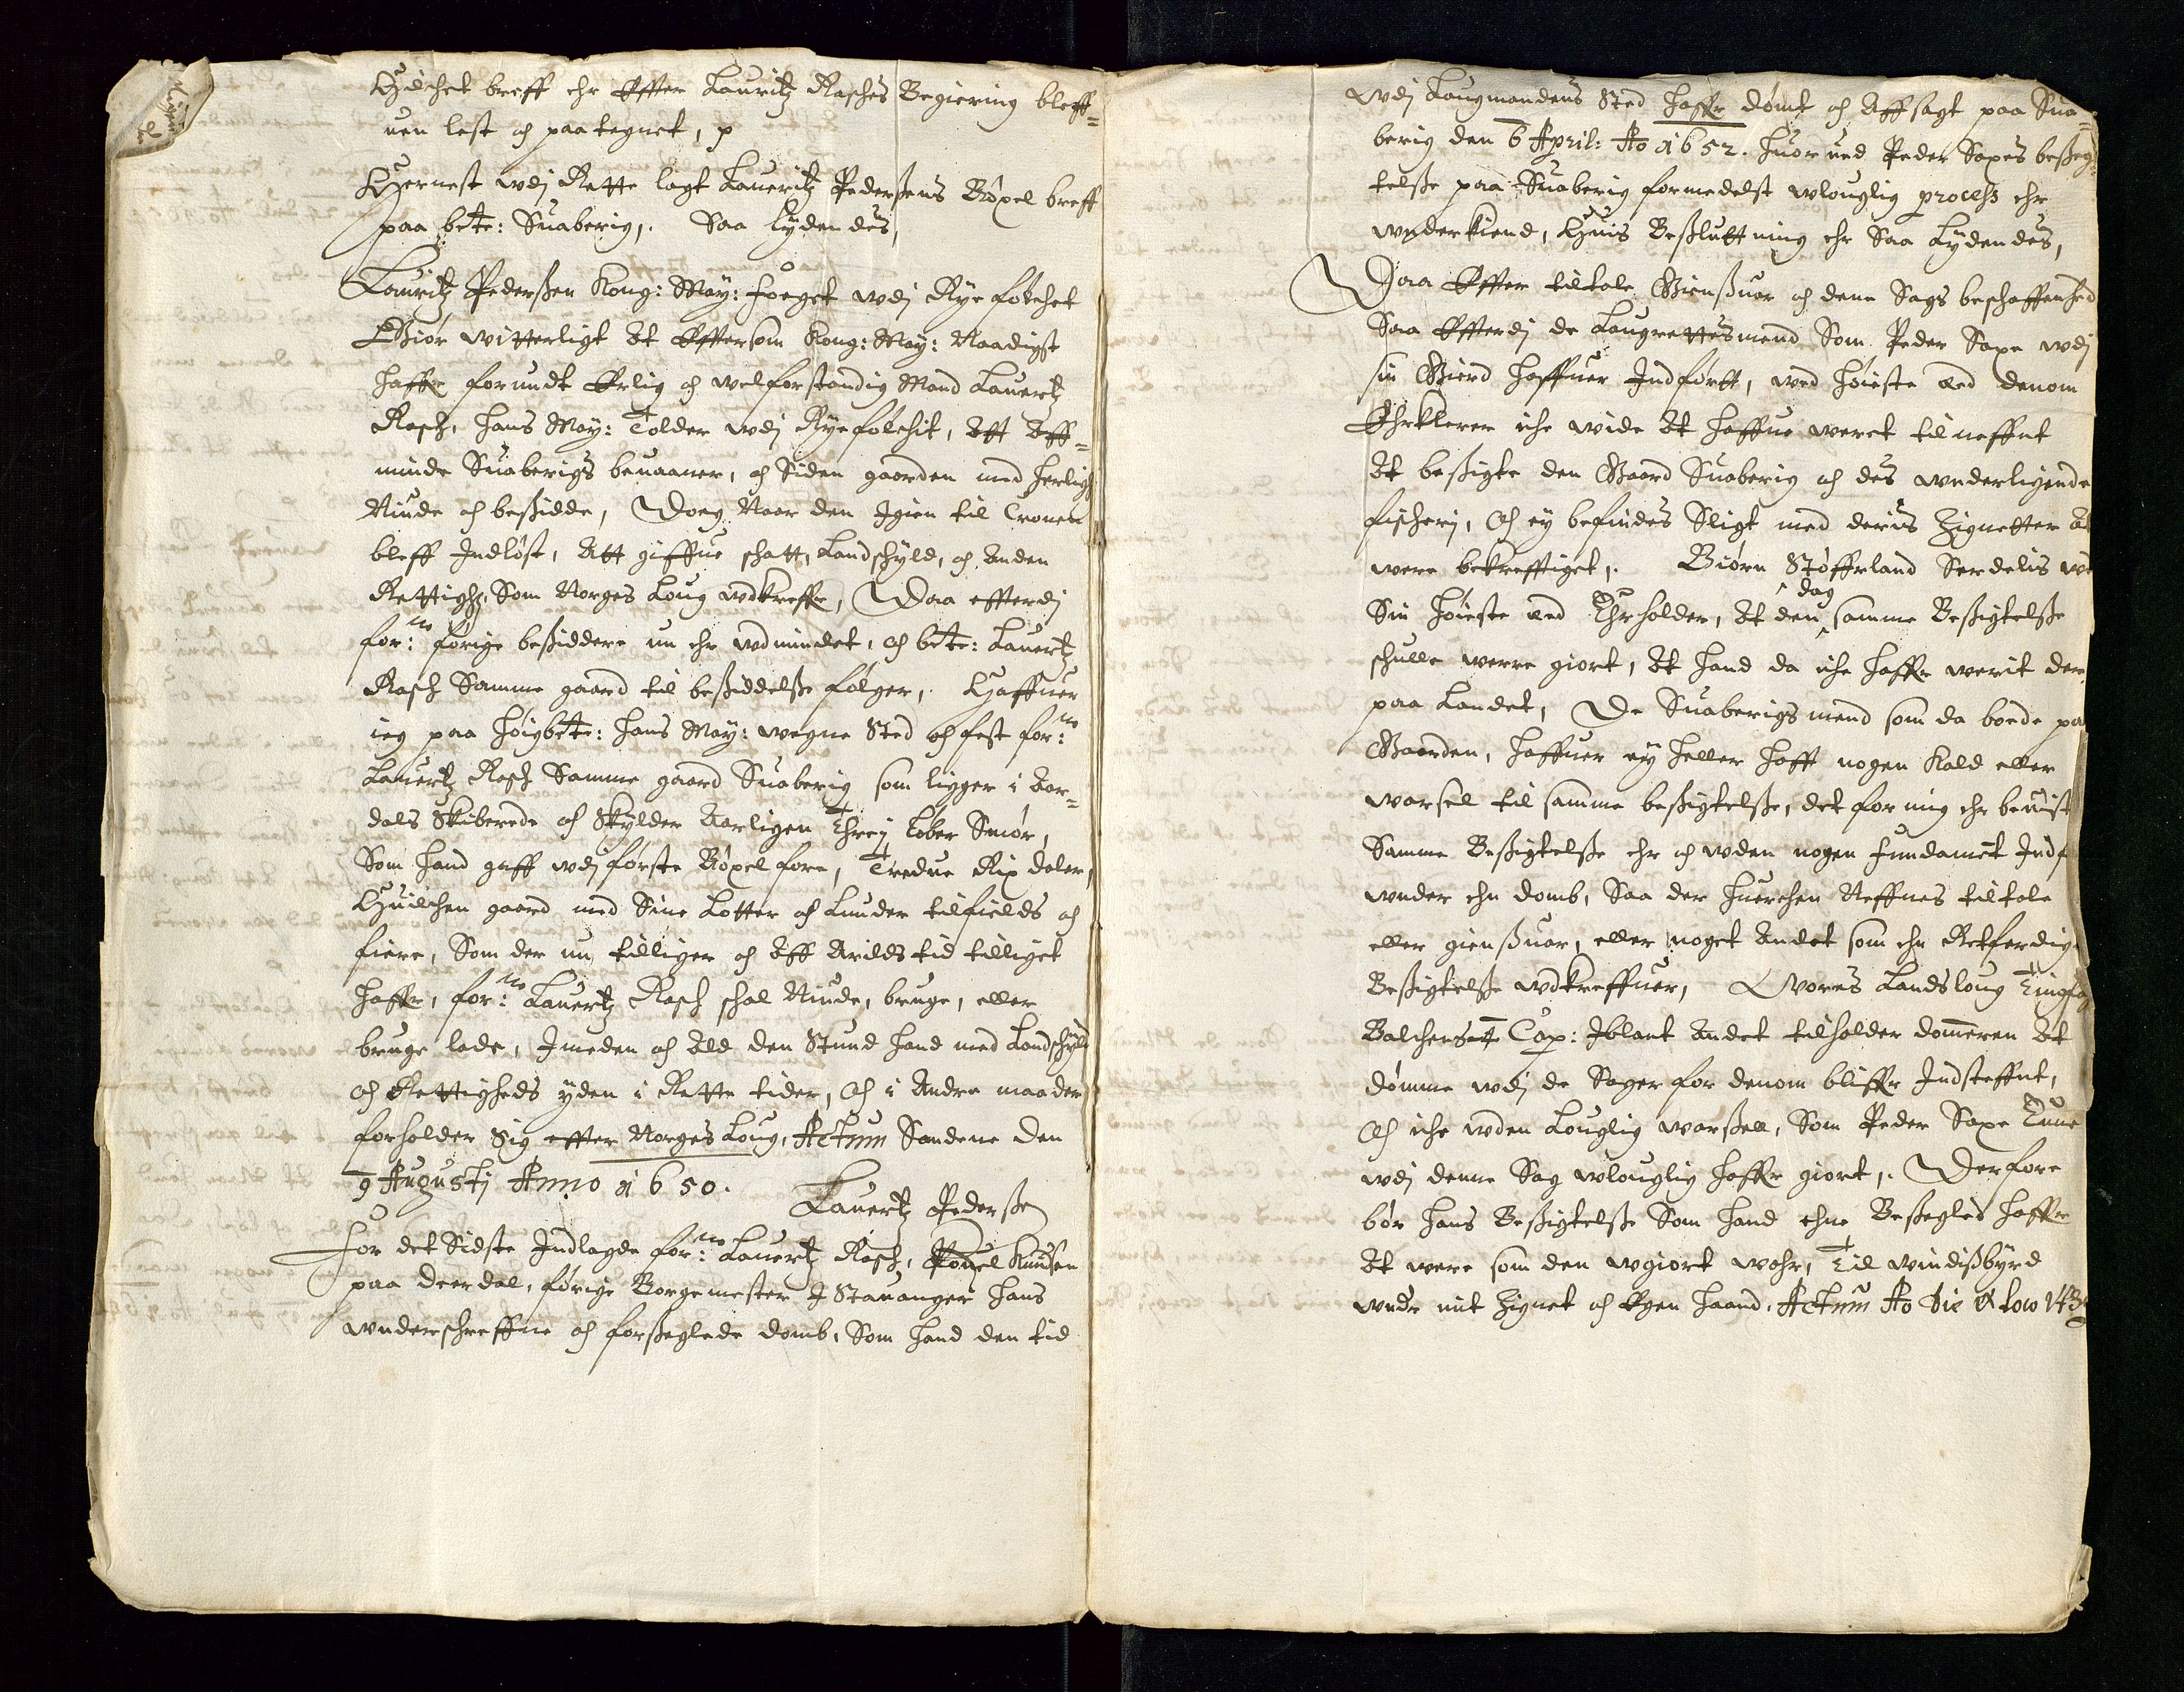 Huilchet breff ehr Effter Lauritz Rasches Begiering bleff=
uen lest och paategnet, p
Hernest wdj Rette lagt Laueritz Pederßens Böxel breff
paa bete: Suaberig, Saa lydendes,
Lauritz Pederßen Kong: May: Foeget wdj Ryefölchet
Giör witterligt At Efftersom Kong: May: Naadigst
Haffr forundt Erlig och welforstandig Mand Lauertz
Rasch, Hans May: Tolder wdj Ryefölchit, Att Aff=
minde Suaberigs beuaaner, och Siden gaarden med herligh
Niude och beßidde, Doeg Naar den Igien til Cronen
bleff Indlöst, Att giffue schatt, Landschyld, och Anden
Rettigh, Som Norges Loug wdkreffr, Daa effterdj
for:ne förige beßiddere nu ehr wdmindet, och bete: Lauertz
Rasch Samme gaard til beßiddelße fölger, Haffuer
ieg paa höigbete: Hans May: wegne Sted och fest for:ne
Lauertz Rasch Samme gaard Suaberig som ligger i Aar=
dals Skiberede och Skylder Aarligen Threj Löber Smör,
Som hand gaff wdj förste Böxel fore, Tredue Rix daler,
Huilchen gaard med Sine Lotter och Lunder tilfields och
fiere, Som der nu tilliger och Aff Arilds tid tilliget
haffr, for:ne Lauertz Rasch schal Niude, bruge, eller
bruge lade, Imeden och Ald den Stund hand med Landschyld
och Rettigheds yden i Rette tider, Och i Andre maader
forholder Sig effter Norges Loug, Actum Sandene den
9 Augustj Anno 1650.
Lauertz Pederße
For det Sidste Indlagde for:ne Lauertz Rasch, Pouel Knudsen
paa deerdal, förige Borgemester I Stauanger Hans
wnderschreffne och forßeglede domb, Som hand den tid
wdj Laugmandens Sted haffr dömt och Affsagt paa Sua=
berig den 6 April: Ao 1652. Huor ued Peder Saxes beßeg=
telße paa Suaberig formedelst wlouglig process ehr
wnderkiend, Huis Beßluttning ehr Saa Lydendes,
Daa Effter tiltale Giensuar och denne Sags beschaffenhed
Saa Effterdj de Laugrettesmend Som Peder Saxe wdj
sin Gierd haffuer Indförtt, wed höieste Eed denom
Ehrklerer iche wide At haffue weret til neffnt
At beßigte den Gaard Suaberig och des wnderligende
fischerj, Och ey befindes Sligt med deris Zignetter At
were bekrefftiget, Biörn Stöffrland Serdelis wed
Sin höieste Eed Ehrholder, At den dag samme Beßigtelße
schulle werre giort, At hand da iche haffr werit der
paa Landet, De Suaberigs mend som da boede paa
Gaarden, haffuer ey heller hafft nogen Kald eller
warsel til samme beßigtelße, det for mig ehr beuist
Samme Beßigtelße ehr och wden nogen fundament Indf
wnder ehn domb, Saa der huerchen Neffnes tiltale
eller giensuar, eller noget Andet som ehn Retferdig
Beßigtelße wdkreffuer, Wores Landsloug Tingfa
Balchens Cap: Iblant Andet tilholder domeren At
dömme wdj de Sager for denom bliffr Indsteffnt,
Och iche wden Louglig warßell, Som Peder Saxe
wdj denne Sag wlouglig haffr giort, Derfore
bör hans Beßigtelße Som hand ehne Beßeglet haffr
At were som den wgiort wohr, Til windißbyrd
wndr mit Zignet och Egen haand, Actum Ao Die & loco